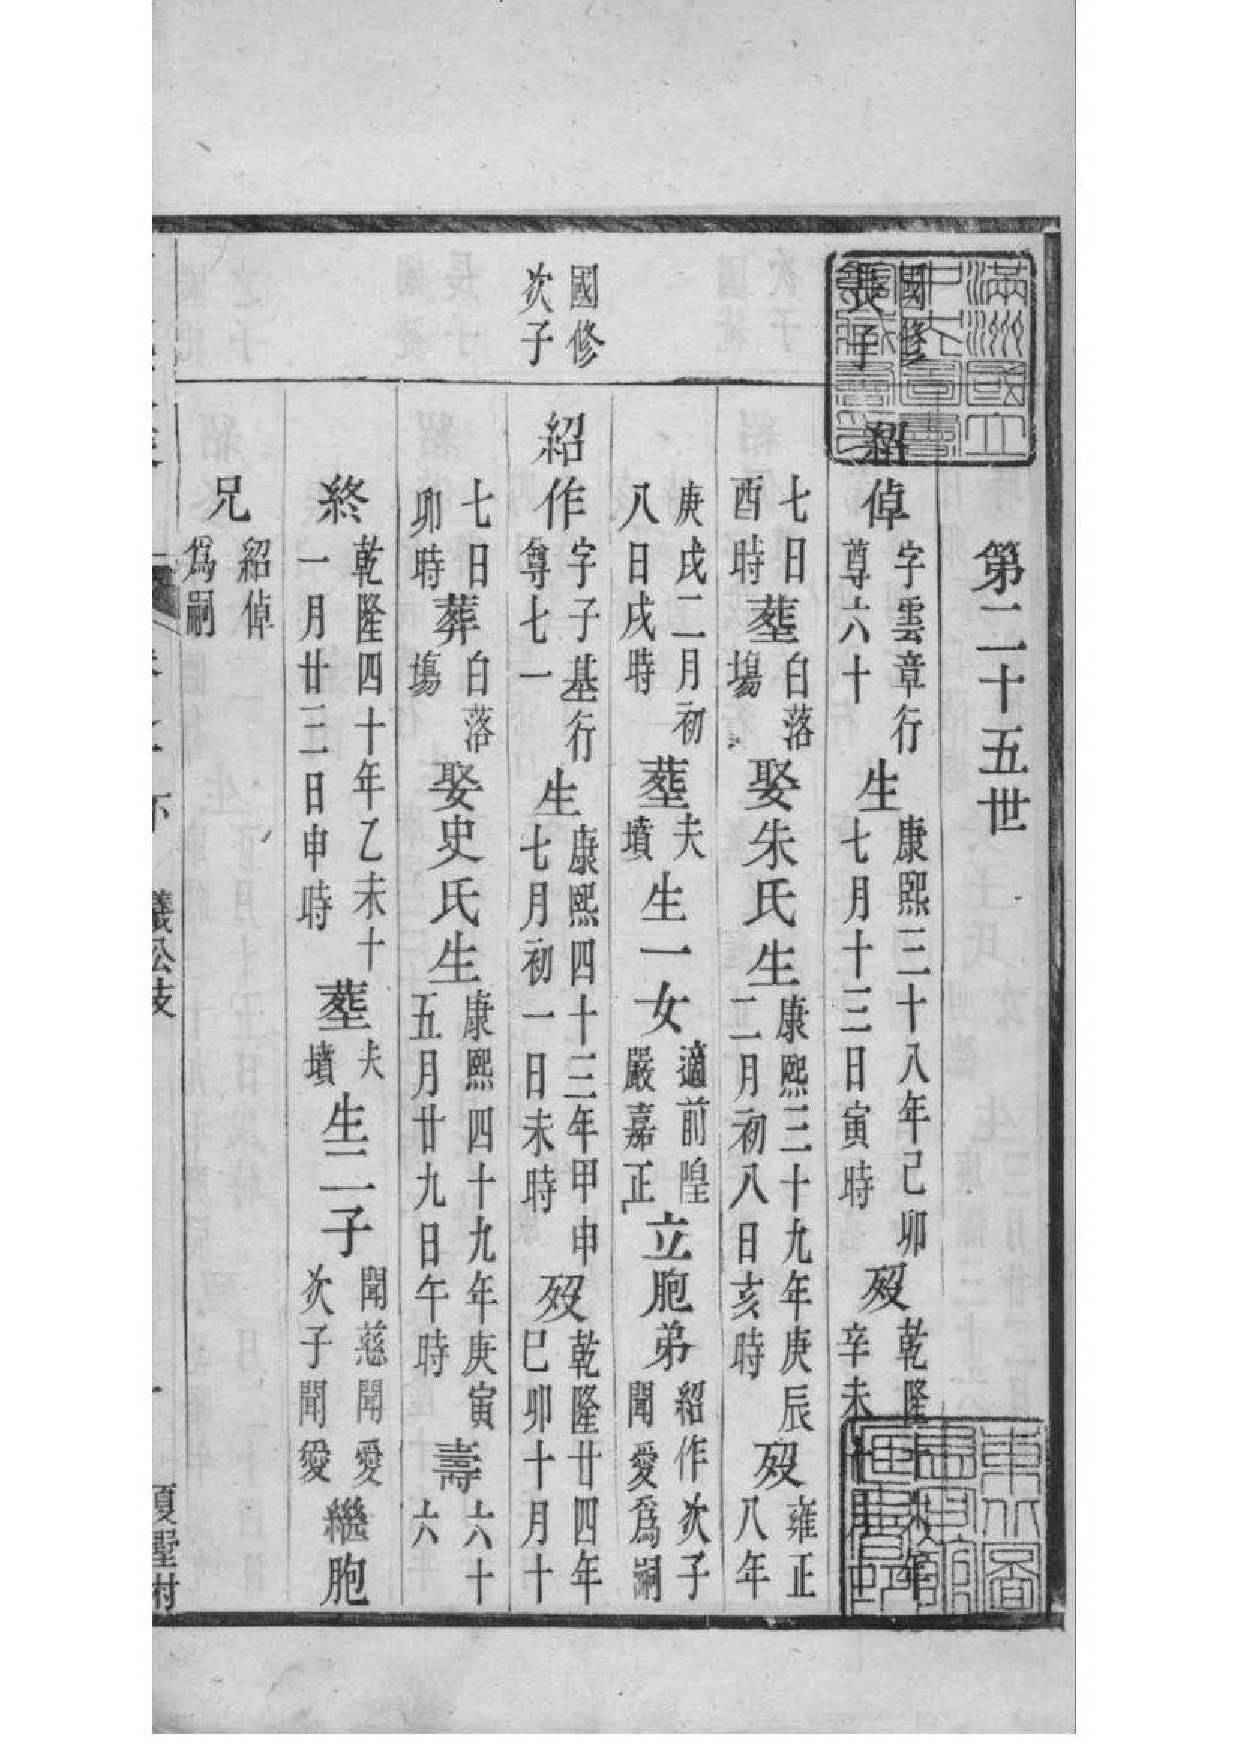 第二十五世
國修長子
紹倬字雲章行尊六十生康熙三十八年己卯七月十三日寅時歿乾隆辛未
七日酉時塟白落塲娶朱氏生康熙三十九年庚辰二月初八日亥時歿雍正八年
庚戌二月初八日戌時塟夫墳生一女適前隍嚴嘉正立胞弟紹作次子聞愛爲嗣
國修次子
紹作字子基行尊七一生康熙四十三年甲申七月初一日未時歿乾隆廿四年巳卯十月十
七日卯時葬白落塲娶史氏生康熙四十九年庚寅五月廿九日午時壽六十六
終乾隆四十年乙未十一月廿三日申時塟夫墳生二子聞慈聞愛次子聞愛繼胞
兄紹倬爲嗣